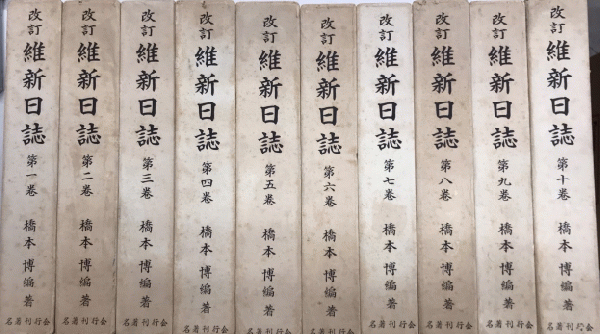 改訂 維新日誌 第一巻 橋本 博編著
名著刊行会
改訂 維新日誌 第二巻 橋本 博編著
名著刊行会
改訂 維新日誌 第三巻 橋本 博編著
名著刊行会
改訂 維新日誌 第四巻 橋本 博編著
名著刊行会
改訂 維新日誌 第五巻 橋本 博編著
名著刊行会
改訂 維新日誌 第六巻 橋本 博編著
名著刊行会
改訂 維新日誌 第七巻 橋本 博編著
名著刊行会
改訂 維新日誌 第八巻 橋本 博編著
名著刊行会
改訂 維新日誌 第九巻 橋本 博編著
名著刊行会
改訂 維新日誌 第十巻 橋本 博編著
名著刊行会